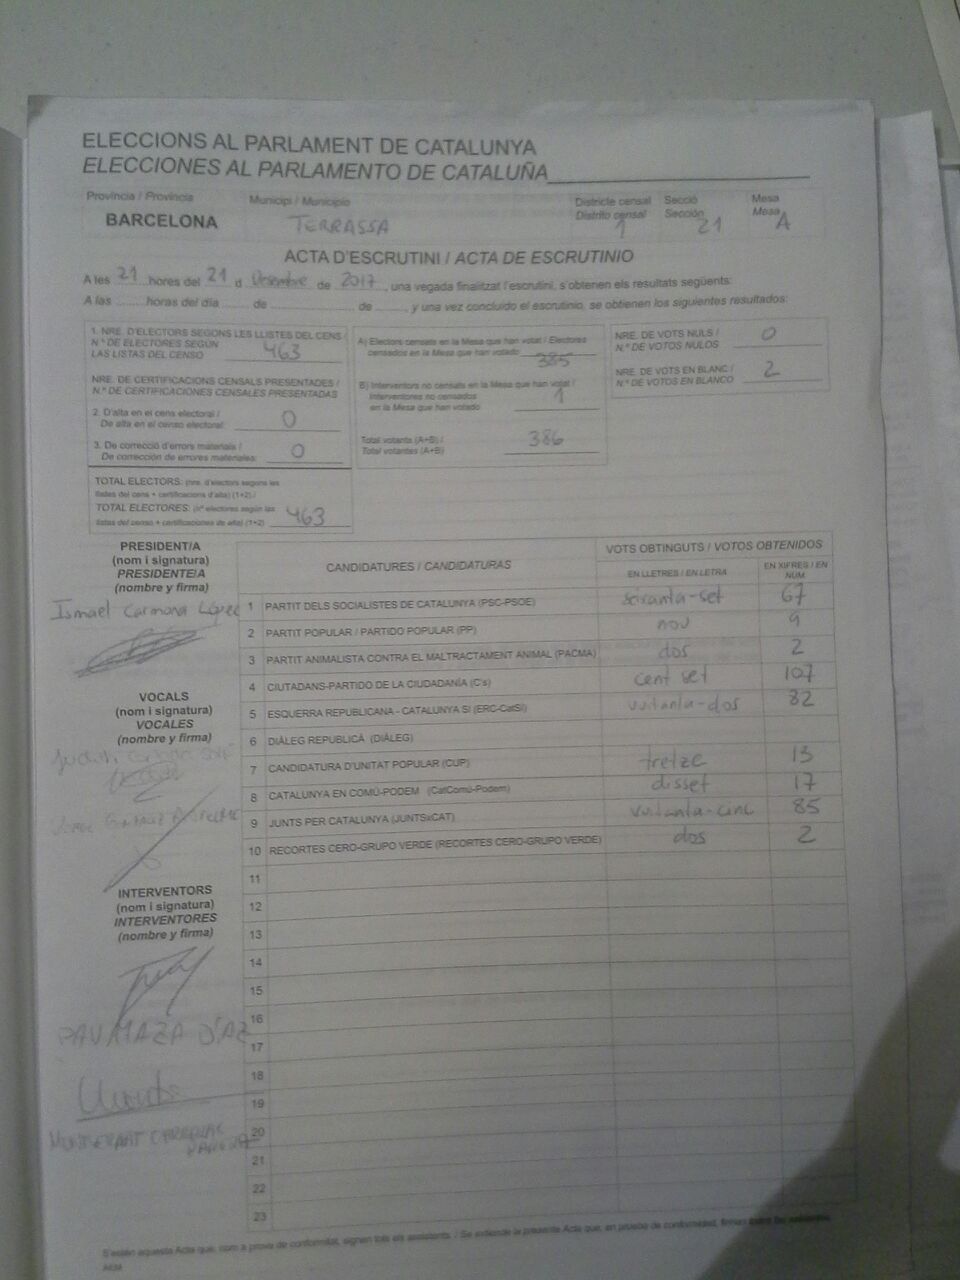 ELECCIONS AL PARLAMENT DE CATALUNYA
ELECCIONES AL PARLAMENTO DE CATALUÑA
Província / Provincia Municipi / Municipio Districte censal Secció Mesa
Distrito censal Sección Mesa
BARCELONA TERRASSA 1 21 A
ACTA D'ESCRUTINI / ACTA DE ESCRUTINIO
A les 21 hores del 21 d Desembre de 2017, una vegada finalitzat l'escrutini, s'obtenen els resultats següents:
A las ......... horas del día ....... de ..................... de ......., y una vez concluido el escrutinio, se obtienen los siguientes resultados:
1. NRE. D'ELECTORS SEGONS LES LLISTES DEL CENS /
N.º DE ELECTORES SEGÚN
LAS LISTAS DEL CENSO 463
NRE. DE CERTIFICACIONS CENSALS PRESENTADES /
N.º DE CERTIFICACIONES CENSALES PRESENTADAS
2. D'alta en el cens electoral /
De alta en el censo electoral: 0
3. De correcció d'errors materials /
De corrección de errores materiales: 0
TOTAL ELECTORS: (nre. d'electors segons les
llistes del cens + certificacions d'alta) (1+2) /
TOTAL ELECTORES: (nº electores según las
listas del censo + certificaciones de alta) (1+2) 463
A) Electors censats en la Mesa que han votat / Electores
censados en la Mesa que han votado 385
B) Interventors no censats en la Mesa que han votat /
Interventores no censados
en la Mesa que han votado 1
Total votants (A+B) /
Total votantes (A+B) 386
NRE. DE VOTS NULS /
N.º DE VOTOS NULOS 0
NRE. DE VOTS EN BLANC /
N.º DE VOTOS EN BLANCO 2
PRESIDENT/A
(nom i signatura)
PRESIDENTE/A
(nombre y firma)
Ismael Carmona López
VOCALS
(nom i signatura)
VOCALES
(nombre y firma)
INTERVENTORS
(nom i signatura)
INTERVENTORES
(nombre y firma)
CANDIDATURES / CANDIDATURAS VOTS OBTINGUTS / VOTOS OBTENIDOS
EN LLETRES / EN LETRA EN XIFRES / EN NÚM
1 PARTIT DELS SOCIALISTES DE CATALUNYA (PSC-PSOE) seixanta-set 67
2 PARTIT POPULAR / PARTIDO POPULAR (PP) nou 9
3 PARTIT ANIMALISTA CONTRA EL MALTRACTAMENT ANIMAL (PACMA) dos 2
4 CIUTADANS-PARTIDO DE LA CIUDADANÍA (C's) cent set 107
5 ESQUERRA REPUBLICANA - CATALUNYA SÍ (ERC-CatSí) vuitanta-dos 82
6 DIÀLEG REPUBLICÀ (DIÀLEG)
7 CANDIDATURA D'UNITAT POPULAR (CUP) tretze 13
8 CATALUNYA EN COMÚ-PODEM (CatComú-Podem) disset 17
9 JUNTS PER CATALUNYA (JUNTSxCAT) vuitanta-cinc 85
10 RECORTES CERO-GRUPO VERDE (RECORTES CERO-GRUPO VERDE) dos 2
11
12
13
14
15
16
17
18
19
20
21
22
23
S'estén aquesta Acta que, com a prova de conformitat, signen tots els assistents. / Se extiende la presente Acta que, en prueba de conformidad, firman